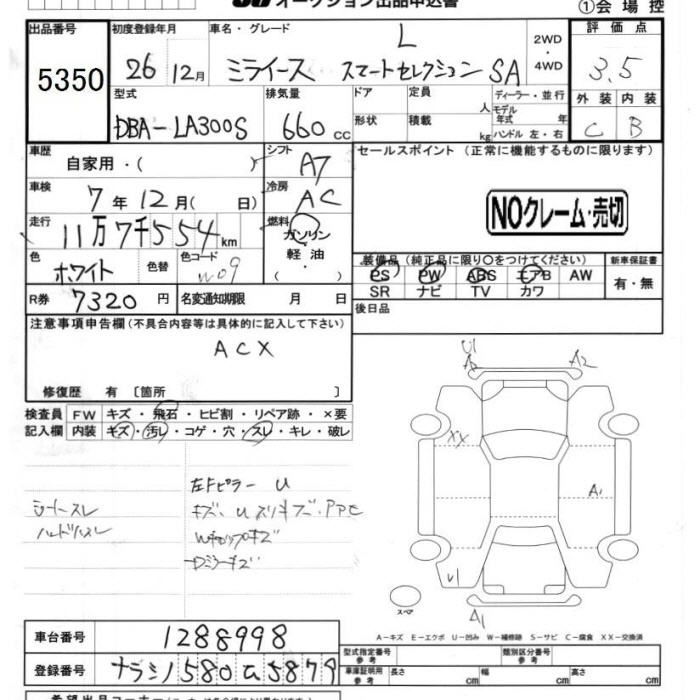 オークション出品申込書
①会場控
出品番号 初度登録年月 車名・グレード 2WD・4WD 評価点
5350 26年12月 ミライース L スマートセレクション SA 3.5
型式 排気量 ドア 定員 人 ディーラー・並行 外装 内装
DBA-LA300S 660cc 形状 積載 kg モデル年式 年 ハンドル 左・右 C B
車歴 自家用・( ) シフト A7 セールスポイント (正常に機能するものに限ります)
車検 7年12月( 日) 冷房 AC
NOクレーム・売切
走行 11万7千554km 燃料 ガソリン・軽油・( )
色 ホワイト 色替 色コード W09
装備品(純正品に限り○をつけてください) 新車保証書
PS PW ABS エアB AW 有・無
SR ナビ TV カワ
R券 7320円 名変通知期限 月 日
後日品
注意事項申告欄(不具合内容等は具体的に記入して下さい)
ACX
修復歴 有〔箇所 〕
検査員 FW キズ・飛石・ヒビ割・リペア跡・×要
記入欄 内装 キズ・汚れ・コゲ・穴・スレ・キレ・破レ
U1 A2
XX
A1
U1
A1
スペア
左Fピラー U
シートスレ
ハンドルスレ
A-キズ E-エクボ U-凹み W-補修跡 S-サビ C-腐食 XX-交換済
車台番号 1288998
型式指定番号 参考 類別区分番号 参考
登録番号 ナラシノ580 5879
車庫証明用 参考 長さ cm 幅 cm 高さ cm